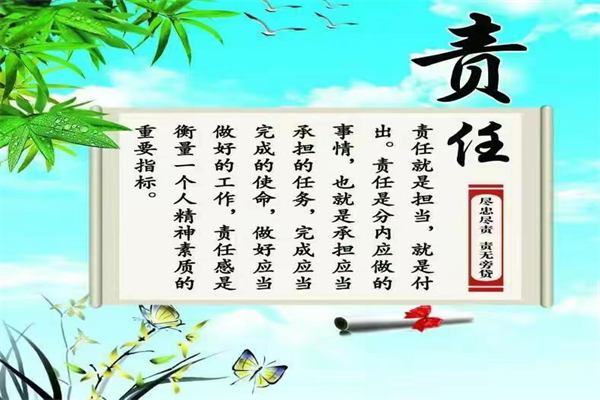 责任
尽忠尽责 责无旁贷
责任就是担当，就是付
出。责任是分内应做的
事情，也就是承担应当
承担的任务，完成应当
完成的使命，做好应当
做好的工作，责任感是
衡量一个人精神素质的
重要指标。